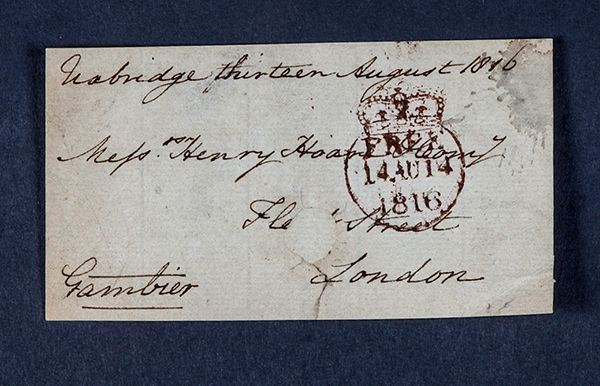 Uxbridge thirteen August 1816
Messrs. Henry Hoare &
FREE
14 AU 14
1816
Fle Street
London
Gambier